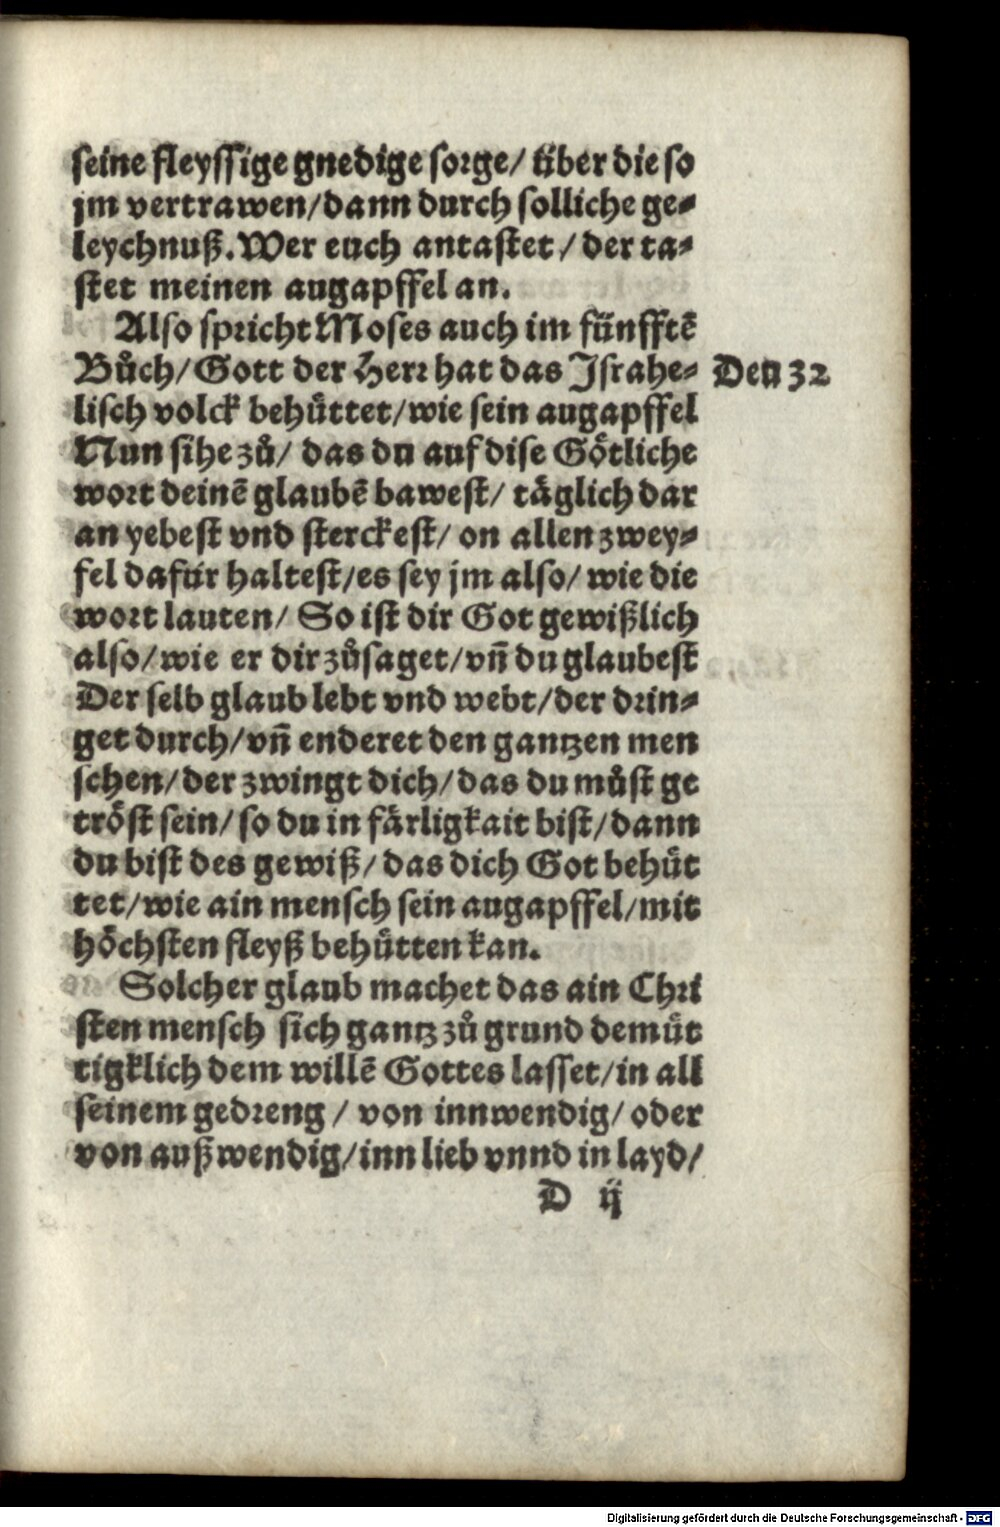 seine fleyssige gnedige sorge/ über die so
jm vertrawen/dann durch solliche ge⸗
leychnuß. Wer euch antastet / der ta⸗
stet meinen augapffel an.
Also spricht Moses auch im fünfftē
Bůch/Gott der Herr hat das Israhe⸗ Deu 32
lisch volck behüttet/wie sein augapffel
Nun sihe zů/ das du auf dise Götliche
wort deinē glaubē bawest/ täglich dar
an yebest vnd sterckest/ on allen zwey⸗
fel dafür haltest/es sey jm also/ wie die
wort lauten/ So ist dir Got gewißlich
also/wie er dir zůsaget/vn̄ du glaubest
Der selb glaub lebt vnd webt/der drin⸗
get durch/vn̄ enderet den gantzen men
schen/der zwingt dich/das du můst ge
tröst sein/so du in färligkait bist/dann
du bist des gewiß/das dich Got behüt
tet/wie ain mensch sein augapffel/mit
höchsten fleyß behütten kan.
Solcher glaub machet das ain Chri
sten mensch sich gantz zů grund demüt
tigklich dem willē Gottes lasset/in all
seinem gedreng / von innwendig/ oder
von außwendig/inn lieb vnnd in layd/
D ij
Digitalisierung gefördert durch die Deutsche Forschungsgemeinschaft - DFG